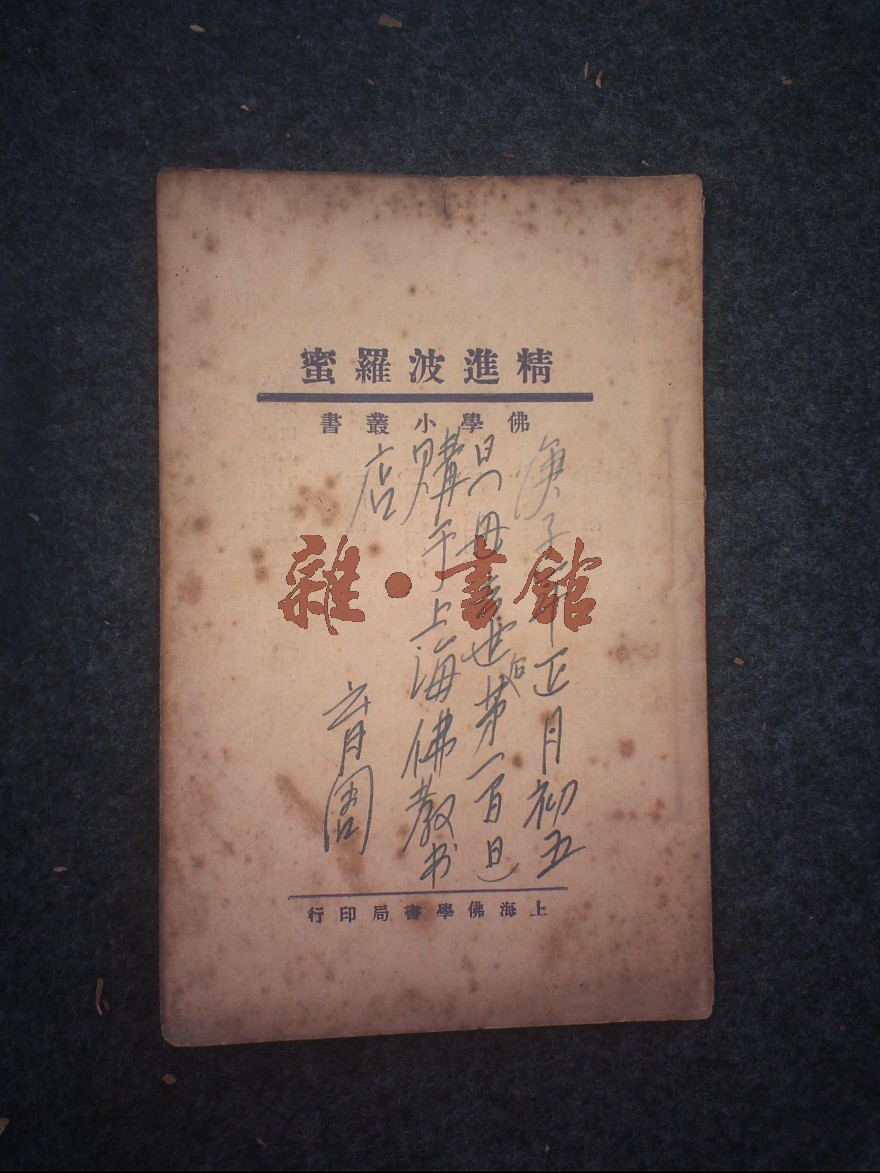 精進波羅蜜
佛學小叢書
庚子年正月初五
日（母去世后第一百日）
購于上海佛教书
店
育
上海佛學書局印行
雜·書館